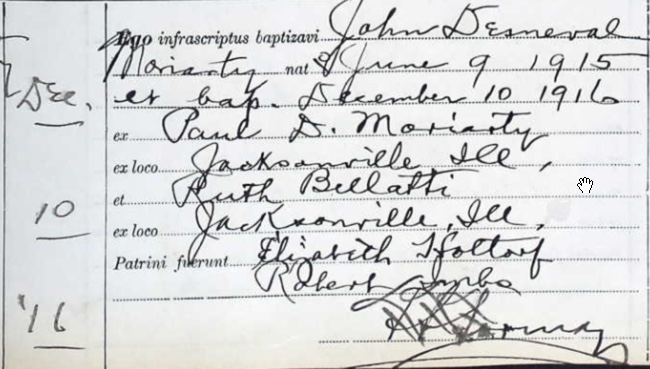 Ego infrascriptus baptizavi John Desneval
Moriarty nat June 9 1915
Dec. et bap. December 10 1916
ex Paul D. Moriarty
ex loco Jacksonville Ill,
et Ruth Bellatti
10
ex loco Jacksonville, Ill,
Patrini fuerunt Elizabeth
Robert
'16